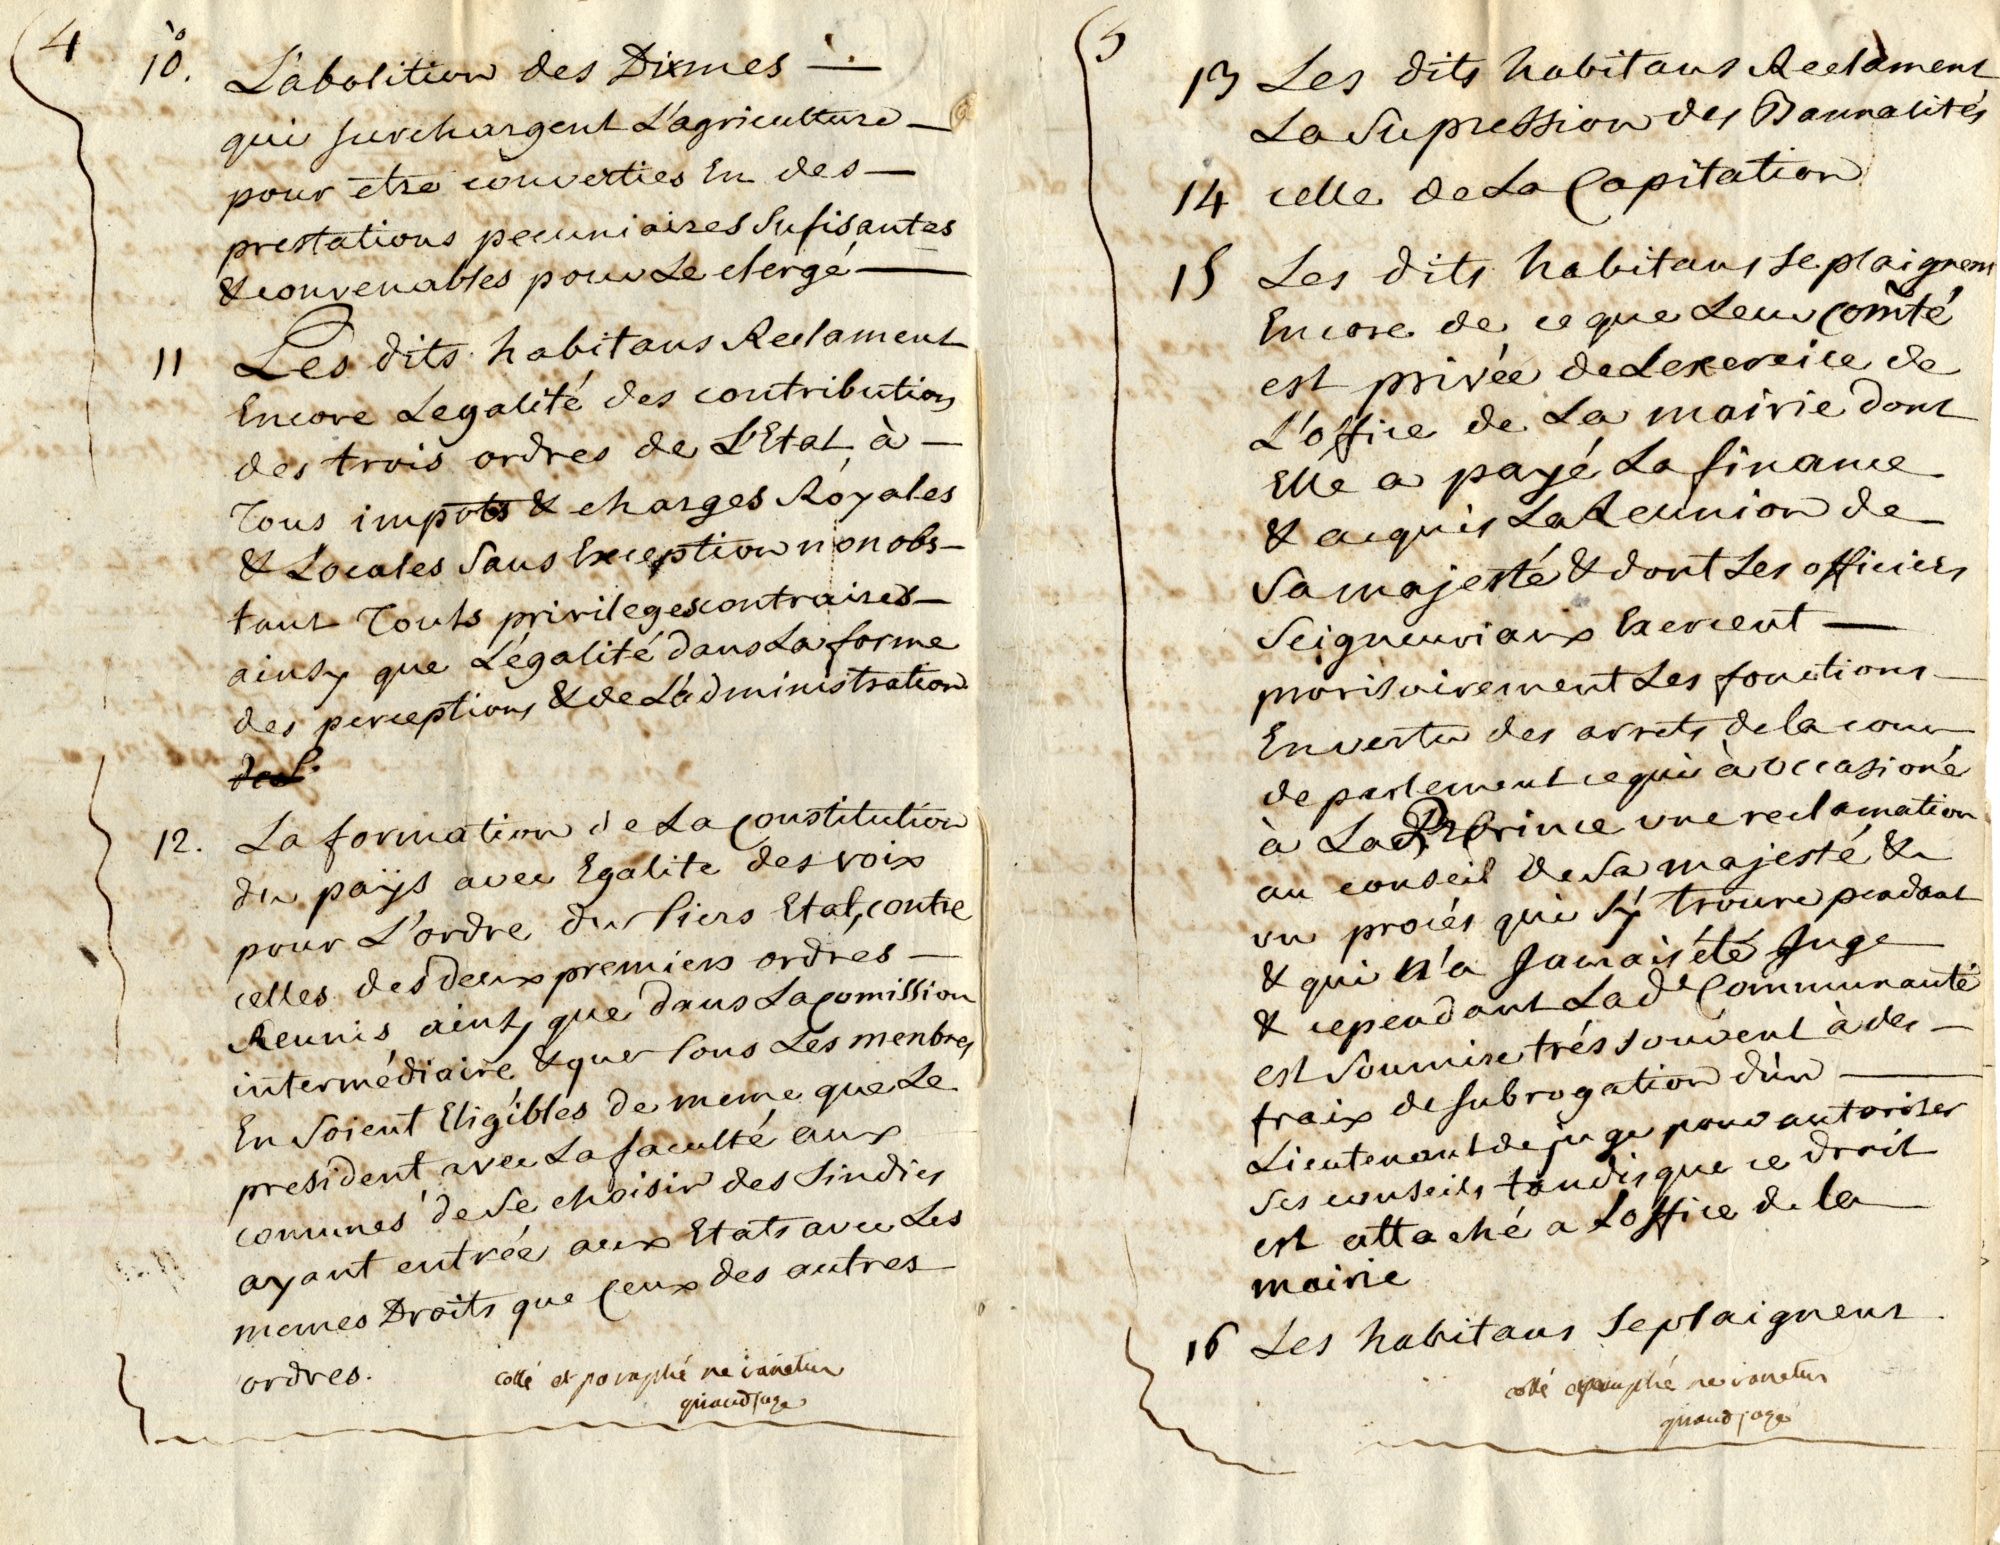 4
10. L'abolition des Dixmes
qui surchargent L'agriculture
pour etre converties En des
prestations pecuniaires Sufisantes
& convenables pour Le clergé
11 Les dits habitans Reclament
Encore Legalité des contributions
des trois ordres de L'Etat à
Tous impots & charges Royales
& Locales Sans Exception nonobs-
tant Touts privileges contraires
ainsy que L'égalité dans La forme
des perceptions & de L'administration
12. La formation de La Constitution
du païjs avec Egalite des voix
pour L'ordre du Tiers Etat, contre
celles des deux premiers ordres
Reunis, ainsy que dans La Comission
intermédiaire & que Tous Les menbres
En Soient Eligibles de meme que Le
president avec La faculté aux
comunes de Se choisir des Sindics
ayant entrée aux Etats avec Les
memes Droits que Ceux des autres
ordres.
cotté et paraphé ne varietur
juge
5
13 Les dits habitans Reclament
La Supression des Bannalités
14 celle de La Capitation
15 Les dits habitans Se plaignent
Encore de ce que Leur Comté
est privée de Lexercice de
L'office de La mairie dont
Elle a payé La finance
& acquis La Reunion de
Sa majesté & dont Les officiers
Seigneuriaux Exercent
provisoirement Les fonctions
En vertu des arrets de la cour
de parlement ce qui à occasioné
à La Prince une reclamation
au conseil de Sa majesté &
un procés qui s'ÿ trouve pendant
& qui N'a Jamais été Juge
& cependant La de Communauté
est Soumise trés souvent à des
fraix de subrogation d'un
Lieutenant de juge pour autoriser
Ses conseils tandis que ce droit
est attaché a Loffice de la
mairie
16 Les habitans Se plaignent
cotté et paraphé ne varietur
juge